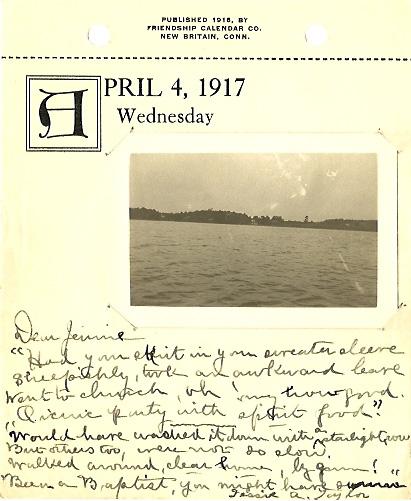 PUBLISHED 1916, BY
FRIENDSHIP CALENDAR CO.
NEW BRITAIN, CONN.
APRIL 4, 1917
Wednesday
Dear Jennie
"Had your skit in your sweater sleeve
Sheepishly, took an awkward leave
Went to church, oh 'my how good.
"Picnic party with spirit food."
Would have washed it down with a starlight row
But others too, were not so slow.
Walked around, clear home, by gum! "
Been a Baptist, you might have
Jessie A.